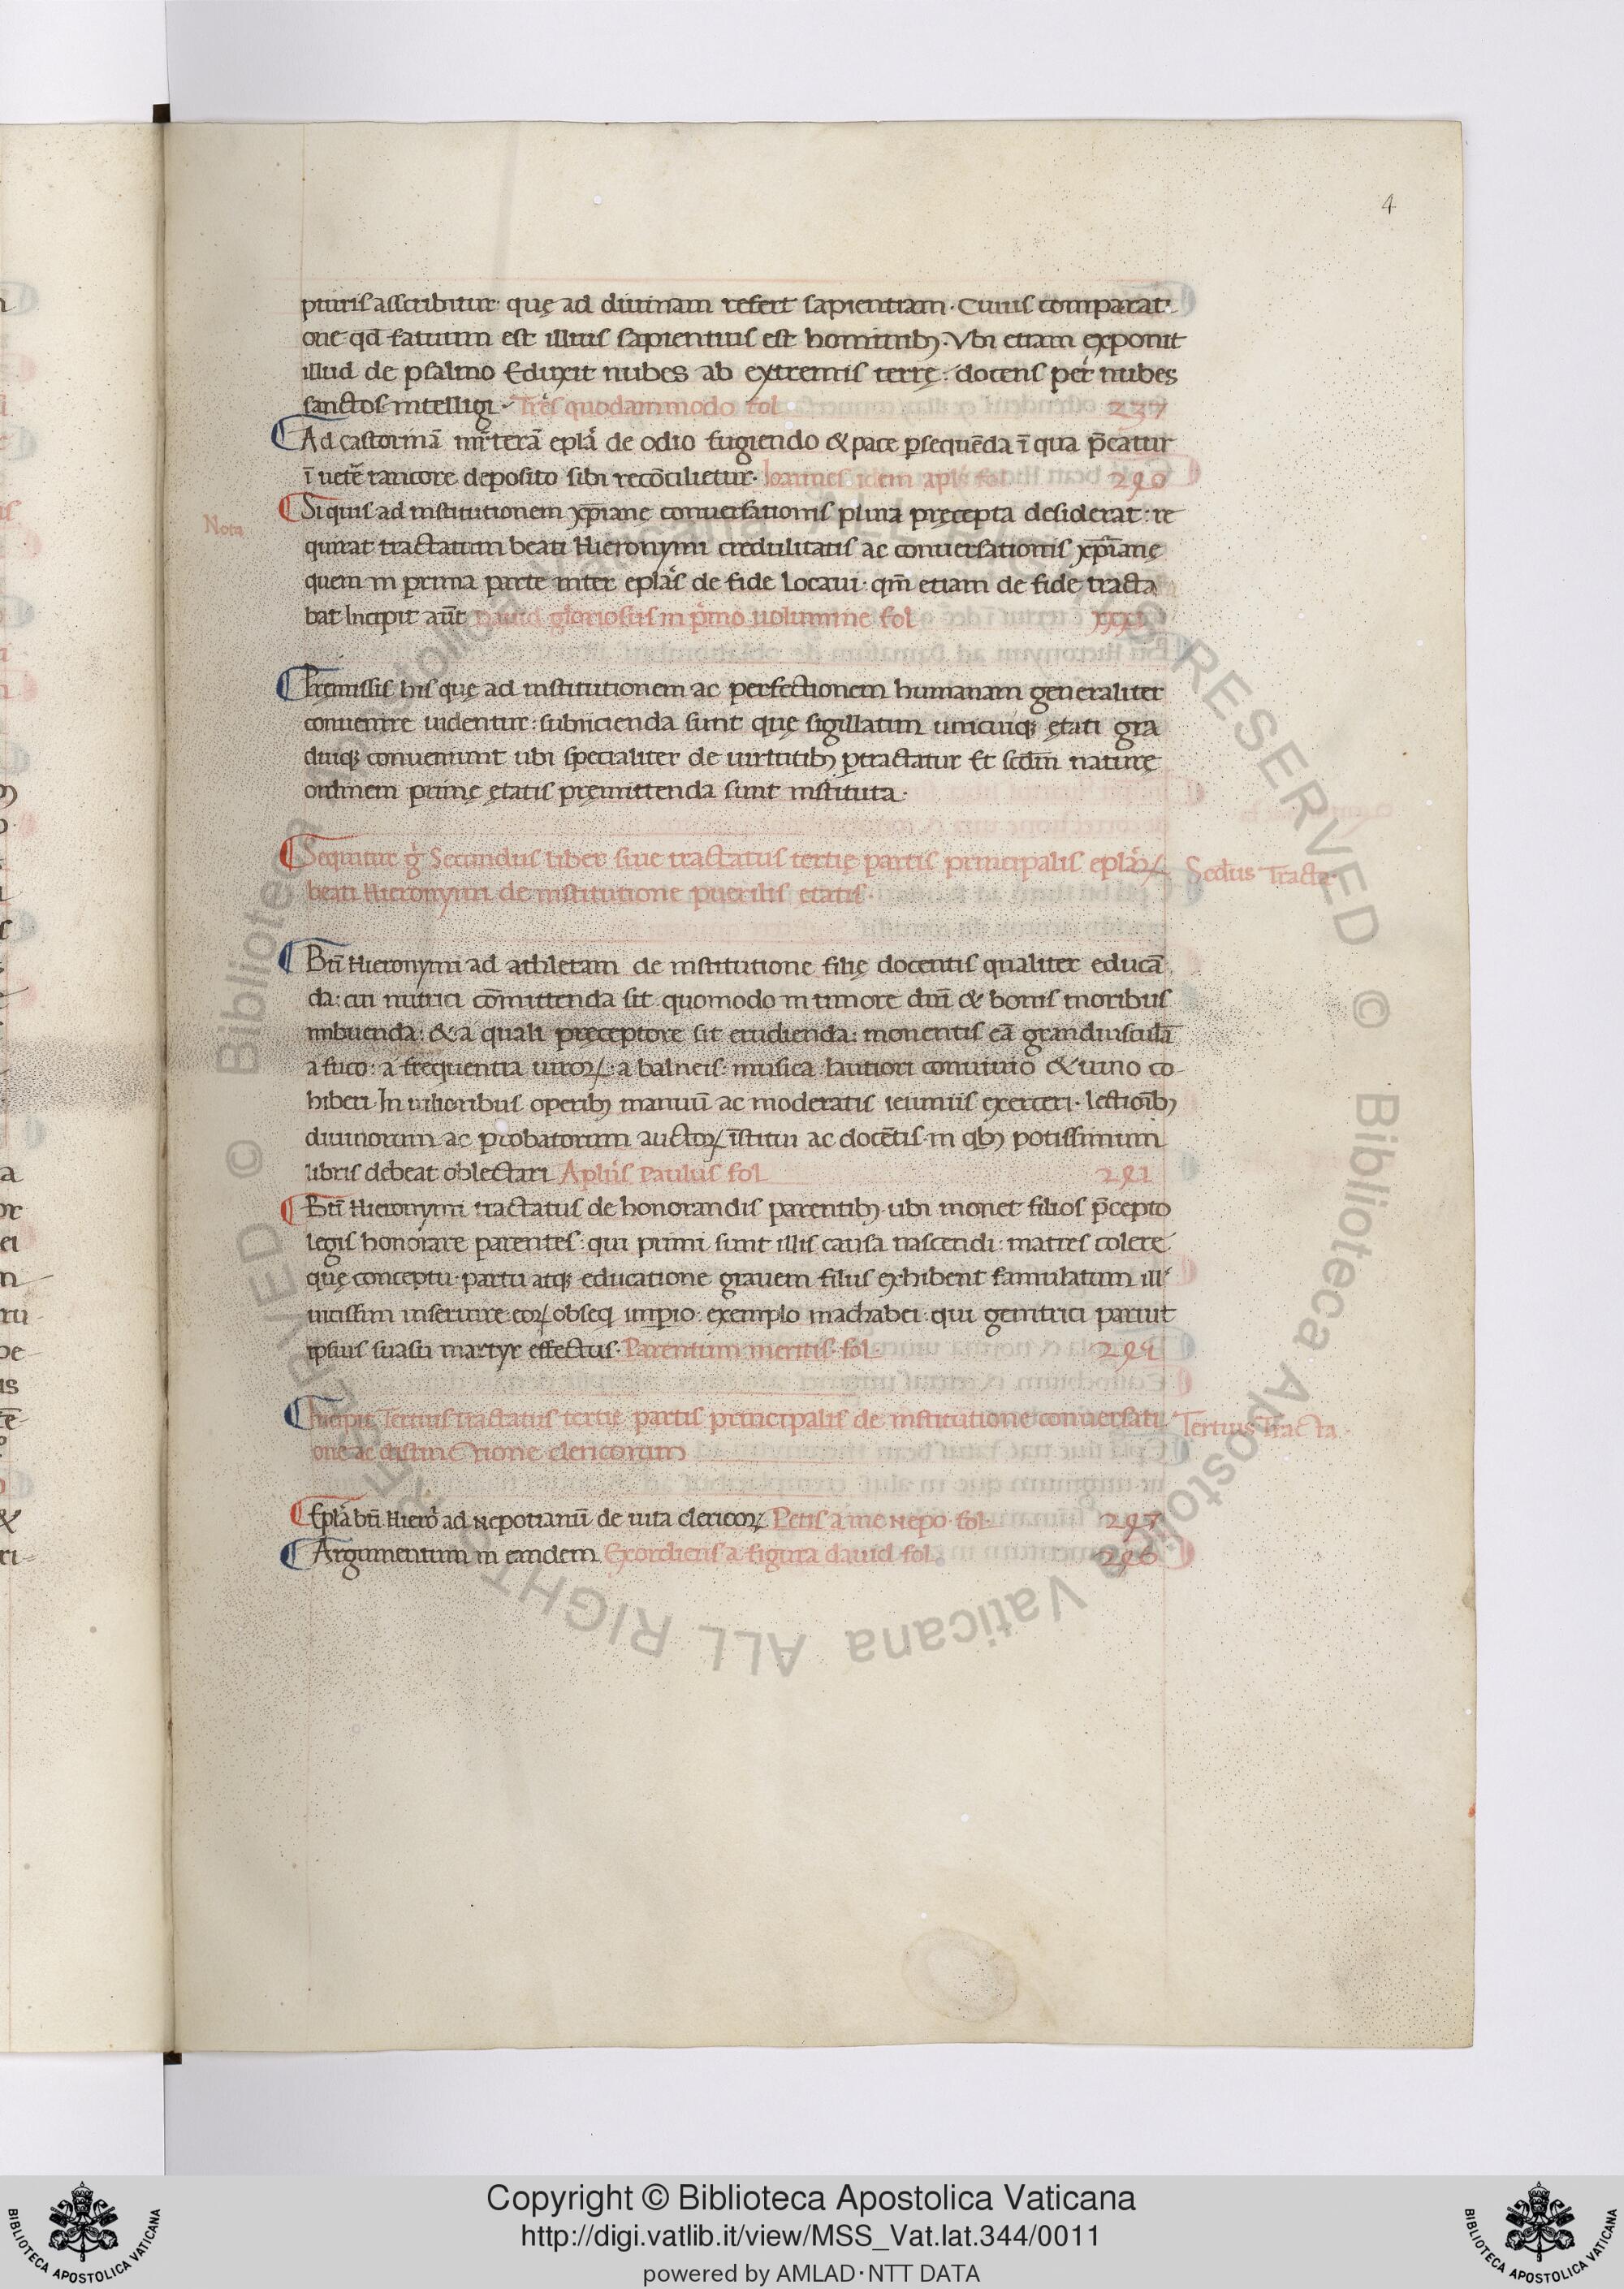 4
pturis asscribitur quę ad diuinam refert sapientiam. Cuius comparat
one qd fatuum est illius sapientius est hominibꝫ. Vbi etiam exponit
illud de psalmo Eduxit nubes ab extremis terrę: docens per nubes
sanctos intelligi. Tres quodammodo fol 237
Ad castorinā mr̄terā eplā de odio fugiendo & pace ꝑsequēda ī qua p̄catur
ī uetē rancore deposito sibi recōcilietur. Ioannes idem apls fol 290
Nota
Si quis ad institutionem xp̄iane conuersationis plura pręcepta desiderat: re
quirat tractatum beati Hieronymi credulitatis ac conuersationis xp̄ianę
quem in prima parte inter eplās de fide locaui. qm̄ etiam de fide tracta
bat Incipit aūt Dauid gloriosus in primo uolumine fol xxxi
Pręmissis his quę ad institutionem ac perfectionem humanam generaliter
conuenire uidentur: subiicienda sunt quę sigillatim unicuiqꝫ ętati gra
duiqꝫ conueniunt ubi specialiter de uirtutibꝫ ꝑtractatur Et scdm̄ naturę
ordinem primę ętatis pręmittenda sunt instituta.
Sequitur g Secundus liber siue tractatus tertię partis principalis eplaꝝ
Secdus Tracta.
beati Hieronymi de institutione puerilis etatis.
Bti Hieronymi ad athletam de institutione filię docentis qualiter educā
da: cui nutrici cōmittenda sit quomodo in timore dn̄i & bonis moribus
imbuenda: & a quali pręceptore sit erudienda: monentis eā grandiusculā
a fuco: a frequentia uiroꝝ: a balneis: musica lautiori conuiuio & uino co-
hiberi. In uilioribus operibꝫ manuū ac moderatis ieiuniis exerceri. lectioībꝫ
diuinorum ac probatorum auctoꝝ īstitui ac docētis in qbꝫ potissimum
libris debeat oblectari Aplus Paulus fol 291
Bti Hieronymi tractatus de honorandis parentibꝫ ubi monet filios p̄cepto
legis honorare parentes: qui primi sunt illis causa nascendi: matres colere
quę conceptu partu atqꝫ educatione grauem filiis exhibent famulatum ill
inseruire eoꝝ obseq imꝑio exemplo machabei qui genitrici pariut
ipsius suasu martyr effectus. Parentum meritis fol 294
Incipit Tertius tractatus tertię partis principalis de institutione conuersati
Tertius Tracta.
one ac distinctione clericorum
Eplā bti Hiero ad Nepotianū de uita clericoꝝ Petis a me Nepo fol 297
Argumentum in eandem Exordiens a figura dauid fol 296
Copyright © Biblioteca Apostolica Vaticana
http://digi.vatlib.it/view/MSS_Vat.lat.344/0011
powered by AMLAD·NTT DATA
BIBLIOTECA APOSTOLICA VATICANA
BIBLIOTECA APOSTOLICA VATICANA